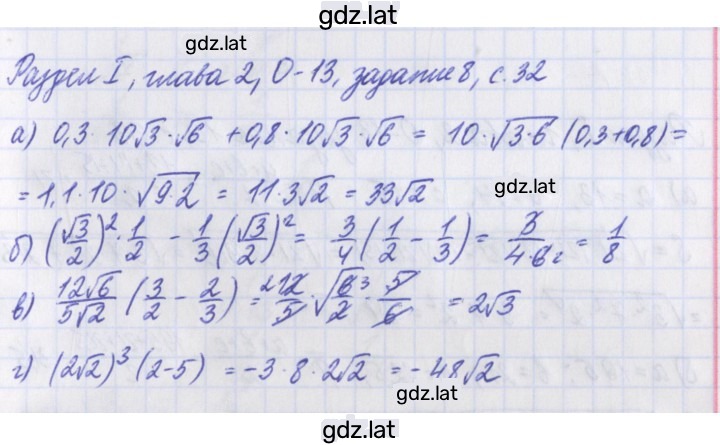 gdz.lat
gdz.lat
Раздел I, глава 2, О-13, задание 8, с. 32
а) 0,3 · 10√3 · √6 + 0,8 · 10√3 · √6 = 10 · √(3·6) (0,3+0,8) =
= 1,1 · 10 · √(9·2) = 11 · 3√2 = 33√2
gdz.lat
б) (√3/2)² · 1/2 − 1/3 (√3/2)² = 3/4 (1/2 − 1/3) = 3/(4·6₂) = 1/8
в) 12√6/5√2 (3/2 − 2/3) = ²12/5 · √(6³/2) · 5/6 = 2√3
г) (2√2)³ (2−5) = −3 · 8 · 2√2 = −48√2
gdz.lat
gdz.lat